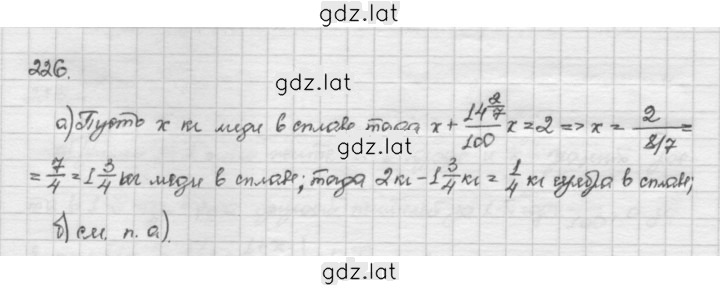 gdz.lat
226.
gdz.lat
а) Пусть x кг меди в сплаве тогда x + 14 2/7 / 100 x = 2 => x = 2 / 8/7 =
gdz.lat
= 7/4 = 1 3/4 кг меди в сплаве; тогда 2кг - 1 3/4 кг = 1/4 кг серебра в сплаве;
gdz.lat
б) см. п. а).
gdz.lat